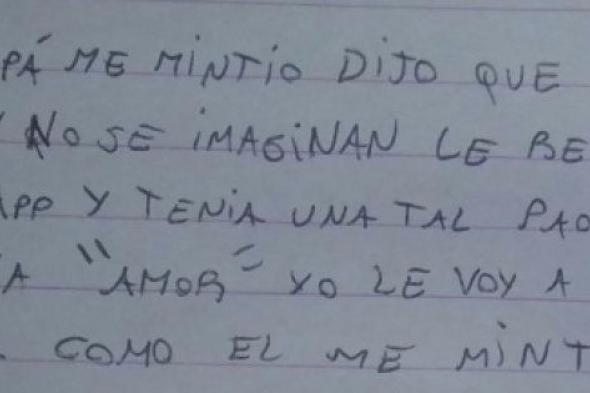 PÁ ME MINTIO DIJO QUE
NO SE IMAGINAN LE BE
APP Y TENIA UNA TAL PAO
A "AMOR" YO LE VOY A
. COMO EL ME MINT